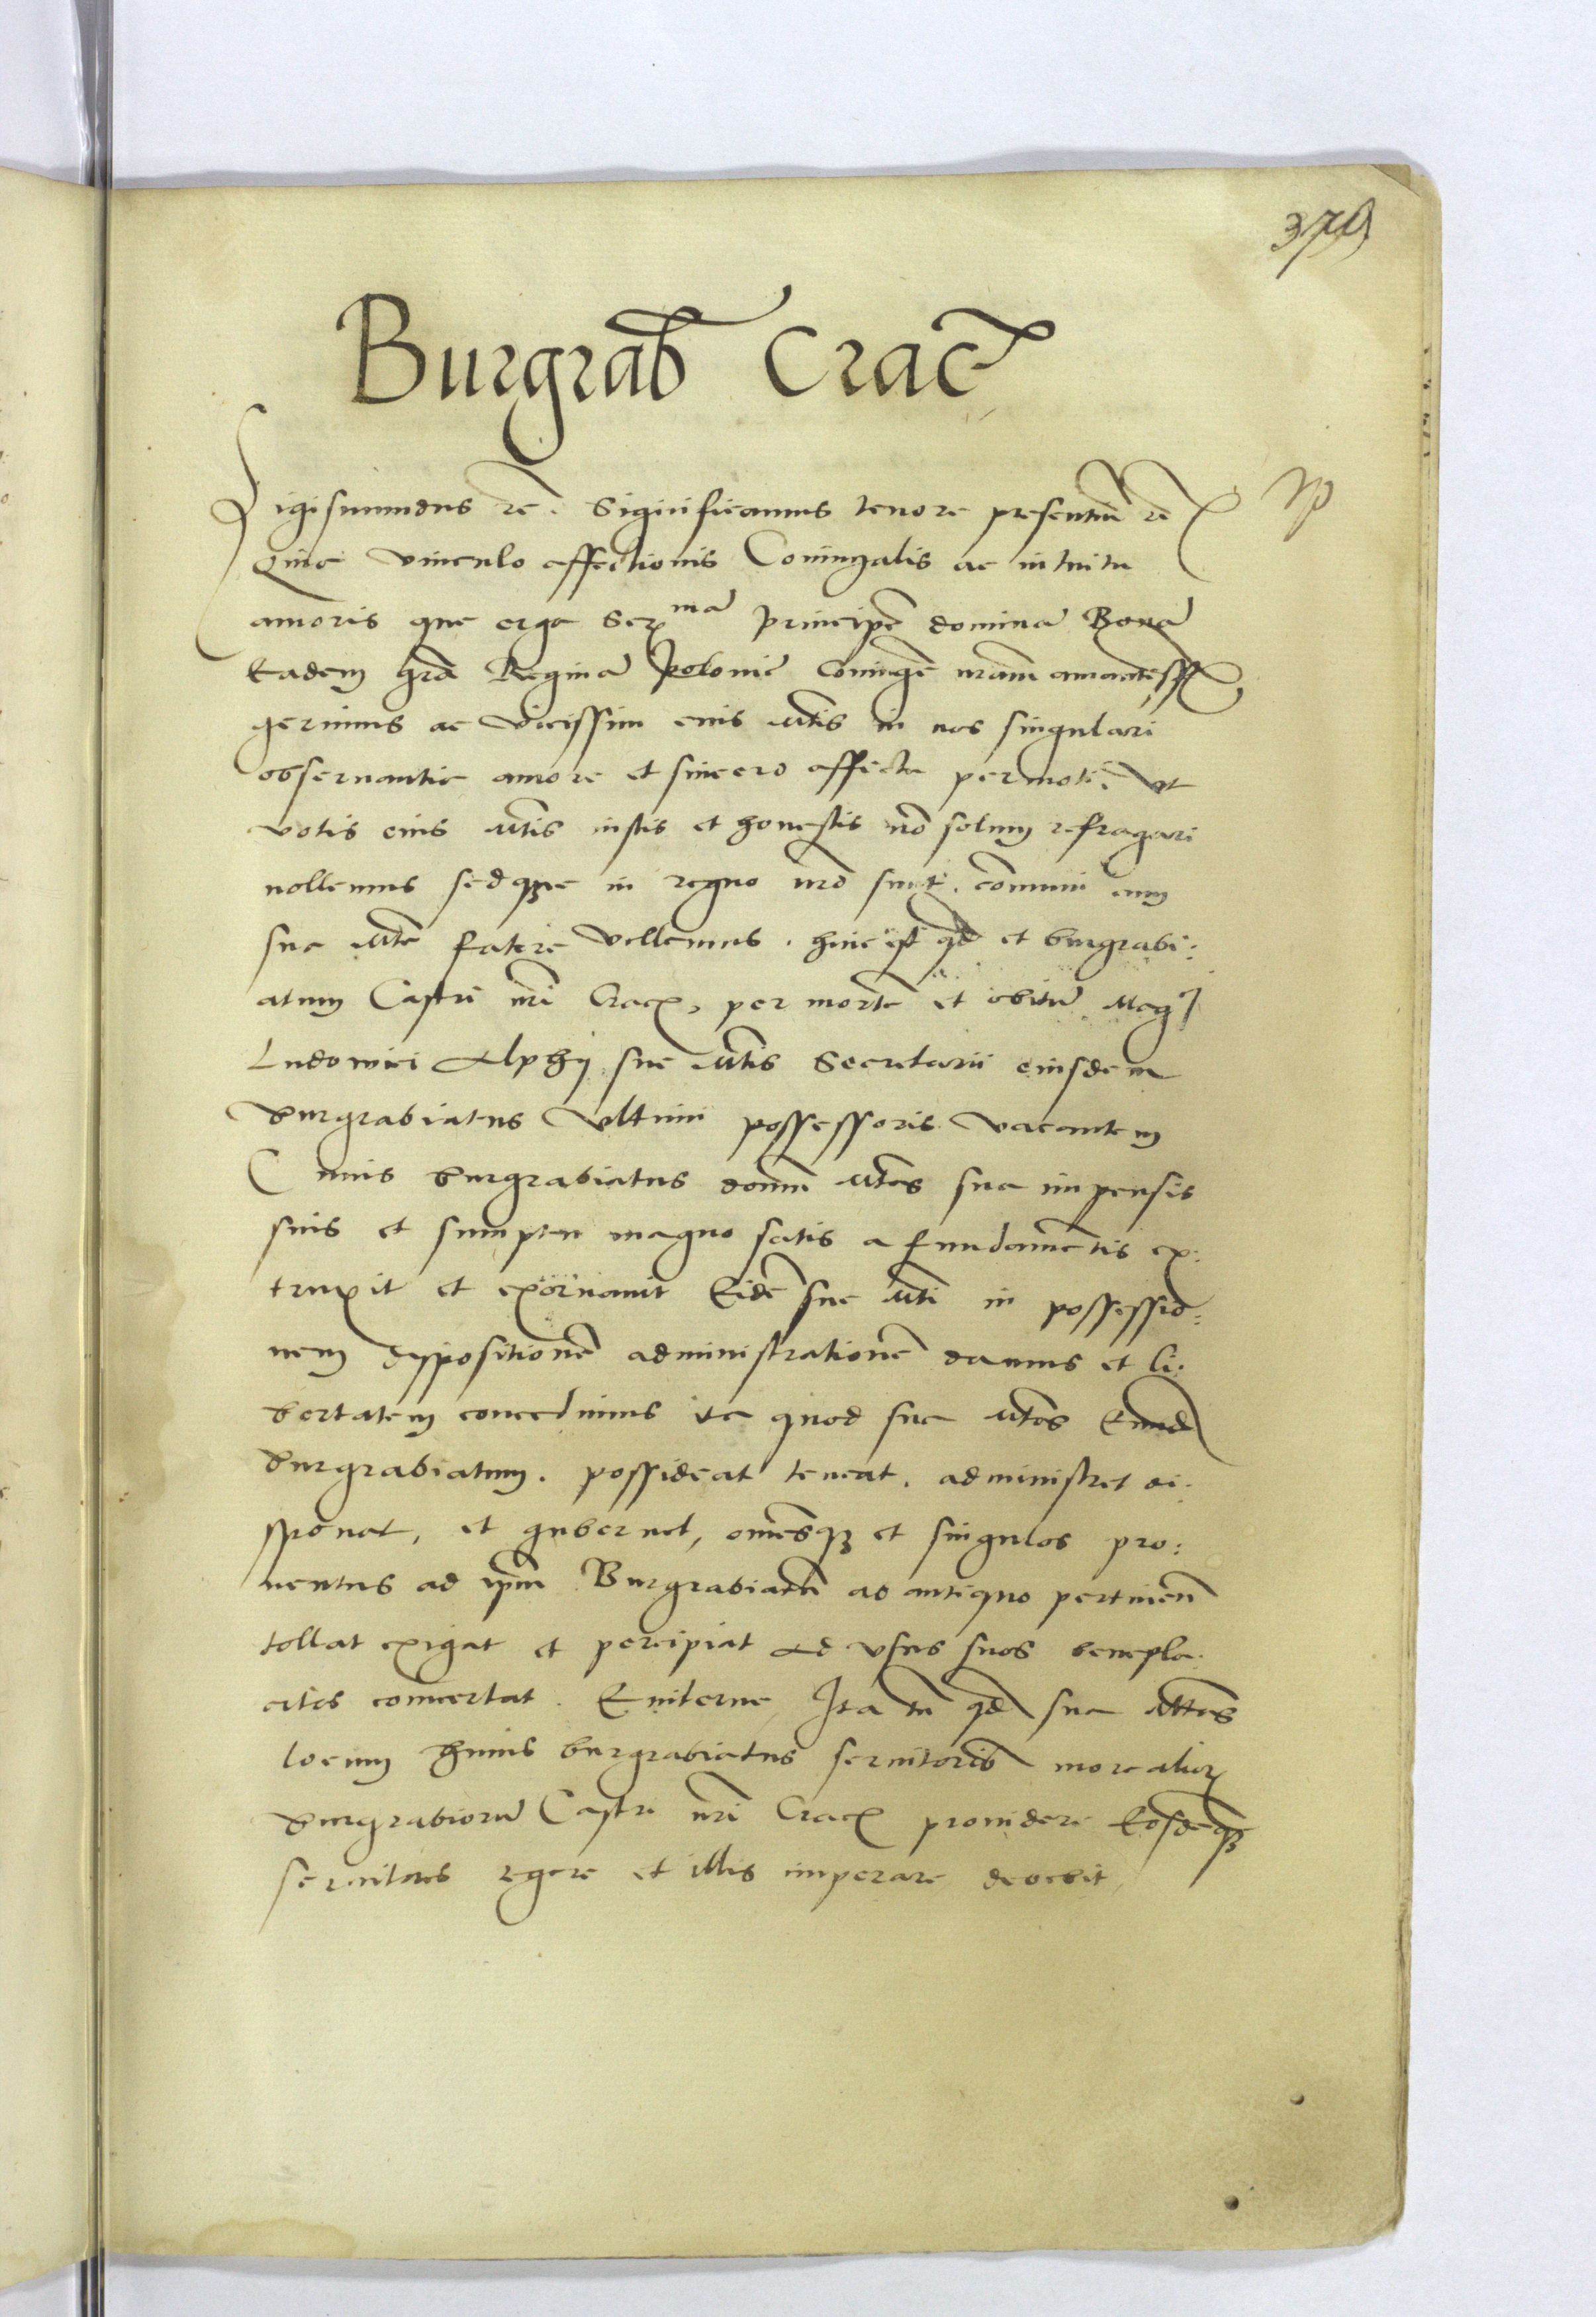 379
Burgrab̄ Crac̄
Sigismundus rc̄. Significamus tenore presentiū rc̄
Quia vinculo affectionis Coniugalis ac intuitu
amoris que erga Serma principē dominā Bonā
Eadem gr̄a Reginā polonie coniugē nr̄am amantiss
gerimus ac vicissim eius Mt̄is in nos singulari
obseruantia amore et sincero affectu permoti. vt
votis eius Mt̄is iustis et honestis nō solum refragari
nollemus sed que in regno nr̄o sunt. com̄unia cum
sua Mt̄e facere vellemus. hinc est qd̄ et burgrabi:
atum Castri nr̄i Crac, per mortē et obitū Mag
Ludowici Alphij sue Mt̄is Secretarii eiusdem
burgrabiatus vltimi possessoris vacantem
Cuius burgrabiatus domū Mt̄as sua impensis
suis et sumptu magno satis a fundamētis ex:
truxit et exornauit Eidē sue Mt̄i in possessio:
nem dispositionē administrationē damus et li:
bertatem concedimus ita quod sua Mt̄as Eund
burgrabiatum. possideat teneat. administret di:
sponat, et gubernet, om̄esqȝ et singulos pro:
uentus ad ip̄m Burgrabiatū ab antiquo pertinen̄
tollat exigat et percipiat Ad vsus suos benepla:
citos conuertat. Euiterne Ita tn̄ qd̄ sua Mt̄tas
locum huius burgrabiatus seruitorib more alior
burgrabiorū Castri nr̄i Crac prouidere Eosdēqȝ
seruitores regere et illis imperare debebit